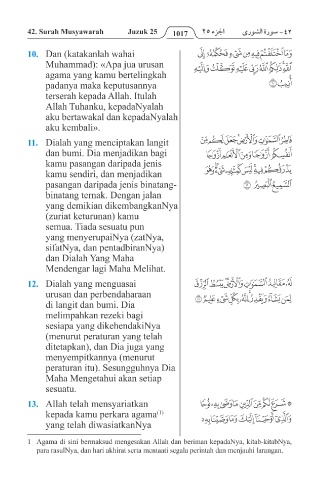 42. Surah Musyawarah Juzuk 25 1017 الجزء ٢٥ ٤٢ – سورة الشورى
10. Dan (katakanlah wahai
Muhammad): «Apa jua urusan
agama yang kamu bertelingkah
padanya maka keputusannya
terserah kepada Allah. Itulah
Allah Tuhanku, kepadaNyalah
aku bertawakal dan kepadaNyalah
aku kembali».
وَمَا ٱخْتَلَفْتُمْ فِيهِ مِن شَىْءٍ فَحُكْمُهُۥٓ إِلَى
ٱللَّهِ ذَٰلِكُمُ ٱللَّهُ رَبِّى عَلَيْهِ تَوَكَّلْتُ وَإِلَيْهِ
أُنِيبُ ١٠
11. Dialah yang menciptakan langit
dan bumi. Dia menjadikan bagi
kamu pasangan daripada jenis
kamu sendiri, dan menjadikan
pasangan daripada jenis binatang-
binatang ternak. Dengan jalan
yang demikian dikembangkanNya
(zuriat keturunan) kamu
semua. Tiada sesuatu pun
yang menyerupaiNya (zatNya,
sifatNya, dan pentadbiranNya)
dan Dialah Yang Maha
Mendengar lagi Maha Melihat.
فَاطِرُ ٱلسَّمَٰوَٰتِ وَٱلْأَرْضِ جَعَلَ لَكُم مِّنْ
أَنفُسِكُمْ أَزْوَٰجًا وَمِنَ ٱلْأَنْعَٰمِ أَزْوَٰجًا
يَذْرَؤُكُمْ فِيهِ لَيْسَ كَمِثْلِهِۦ شَىْءٌ وَهُوَ
ٱلسَّمِيعُ ٱلْبَصِيرُ ١١
12. Dialah yang menguasai
urusan dan perbendaharaan
di langit dan bumi. Dia
melimpahkan rezeki bagi
sesiapa yang dikehendakiNya
(menurut peraturan yang telah
ditetapkan), dan Dia juga yang
menyempitkannya (menurut
peraturan itu). Sesungguhnya Dia
Maha Mengetahui akan setiap
sesuatu.
لَهُۥ مَقَالِيدُ ٱلسَّمَٰوَٰتِ وَٱلْأَرْضِ يَبْسُطُ ٱلرِّزْقَ
لِمَن يَشَآءُ وَيَقْدِرُ إِنَّهُۥ بِكُلِّ شَىْءٍ عَلِيمٌ ١٢
13. Allah telah mensyariatkan
kepada kamu perkara agama(1)
yang telah diwasiatkanNya
۞ شَرَعَ لَكُم مِّنَ ٱلدِّينِ مَا وَصَّىٰ بِهِۦ نُوحًا
وَٱلَّذِىٓ أَوْحَيْنَآ إِلَيْكَ وَمَا وَصَّيْنَا بِهِۦٓ
1 Agama di sini bermaksud mengesakan Allah dan beriman kepadaNya, kitab-kitabNya,
para rasulNya, dan hari akhirat serta mentaati segala perintah dan menjauhi larangan.